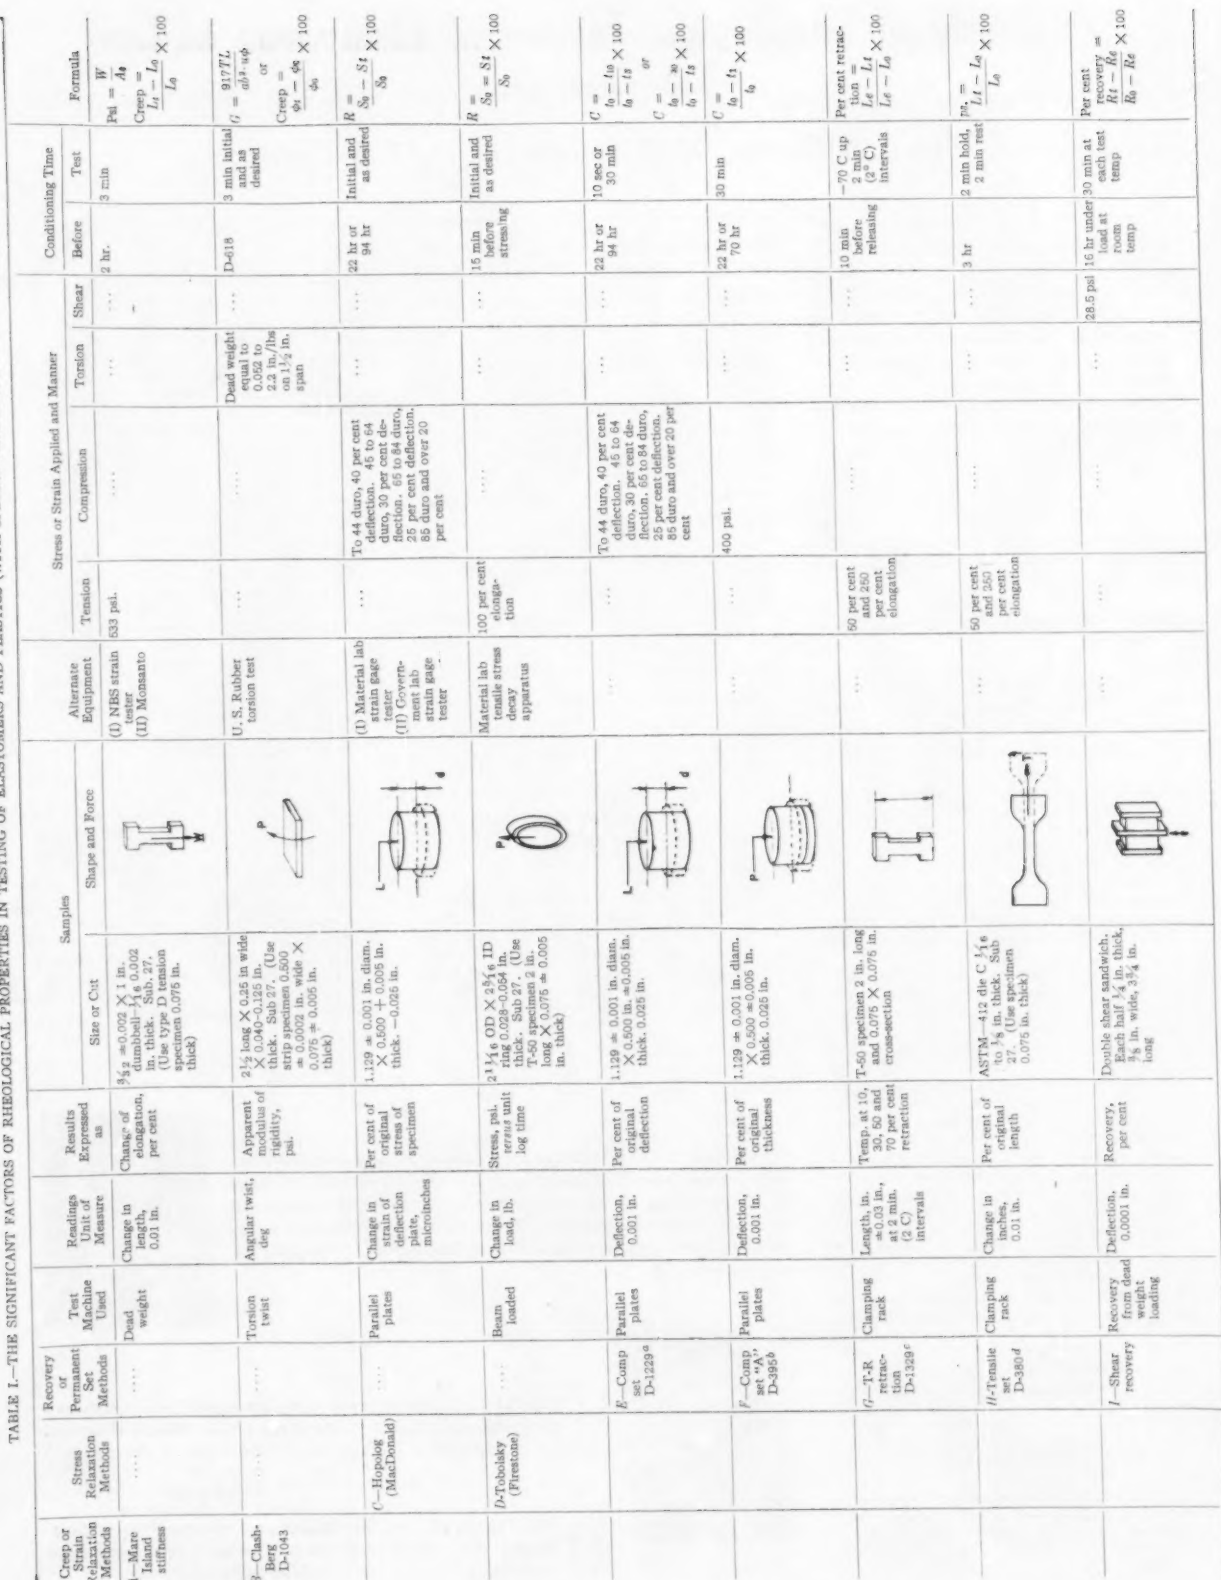 TABLE I.—THE SIGNIFICANT FACTORS OF RHEOLOGICAL PROPERTIES IN TESTING OF ELASTOMERS AND PLASTICS
Creep or
Strain
Relaxation
Methods
Stress
Relaxation
Methods
Recovery
or
Permanent
Set
Methods
Test
Machine
Used
Readings
Unit of
Measure
Results
Expressed
as
Samples
Size or Cut
Shape and Force
Alternate
Equipment
Stress or Strain Applied and Manner
Tension
Compression
Torsion
Shear
Conditioning Time
Before
Test
Formula
—Mare
Island
stiffness
....
....
Dead
weight
Change in
length,
0.01 in.
Change of
elongation,
per cent
3/32 ± 0.002 × 1 in.
dumbbell-1/16 0.002
in. thick. Sub. 27.
(Use type D tension
specimen 0.075 in.
thick)
W
(I) NBS strain
tester
(II) Monsanto
533 psi.
....
...
...
2 hr.
3 min
Psi = W/A0
Creep =
(Lt − L0)/L0 × 100
—Clash-
Berg
D-1043
....
....
Torsion
twist
Angular twist,
deg
Apparent
modulus of
rigidity,
psi.
2½ long × 0.25 in wide
× 0.040-0.125 in.
thick. Sub 27. (Use
strip specimen 0.500
± 0.0002 in. wide ×
0.075 ± 0.005 in.
thick)
P
U. S. Rubber
torsion test
...
....
Dead weight
equal to
0.052 to
2.2 in./lbs
on 1½ in.
span
...
D-618
3 min initial
and as
desired
G = 917TL/ab³·uφ
or
Creep =
(φt − φ0)/φ0 × 100
C—Hopolog
(MacDonald)
....
Parallel
plates
Change in
strain of
deflection
plate,
microinches
Per cent of
original
stress of
specimen
1.129 ± 0.001 in. diam.
× 0.500 + 0.005 in.
thick. −0.025 in.
L
d
(I) Material lab
strain gage
tester
(II) Govern-
ment lab
strain gage
tester
...
To 44 duro, 40 per cent
deflection. 45 to 64
duro, 30 per cent de-
flection. 65 to 84 duro,
25 per cent deflection.
85 duro and over 20
per cent
...
...
22 hr or
94 hr
Initial and
as desired
R =
(S0 − St)/S0 × 100
D-Tobolsky
(Firestone)
Beam
loaded
Change in
load, lb.
Stress, psi.
versus unit
log time
2 11/16 OD × 2 9/16 ID
ring 0.028-0.054 in.
thick. Sub 27. (Use
T-50 specimen 2 in.
long × 0.075 ± 0.005
in. thick)
P
Material lab
tensile stress
decay
apparatus
100 per cent
elonga-
tion
....
...
...
15 min
before
stressing
Initial and
as desired
R =
(S0 = St)/S0 × 100
E—Comp
set
D-1229a
Parallel
plates
Deflection,
0.001 in.
Per cent of
original
deflection
1.129 ± 0.001 in. diam.
× 0.500 in. ± 0.005 in.
thick. 0.025 in.
L
d
...
...
To 44 duro, 40 per cent
deflection. 45 to 64
duro, 30 per cent de-
flection. 65 to 84 duro,
25 per cent deflection.
85 duro and over 20 per
cent
...
...
22 hr or
94 hr
10 sec or
30 min
C =
(t0 − t10)/(t0 − ts) × 100
or
C =
(t0 − 30)/(t0 − ts) × 100
F—Comp
set "A"
D-395b
Parallel
plates
Deflection,
0.001 in.
Per cent of
original
thickness
1.129 ± 0.001 in. diam.
× 0.500 ± 0.005 in.
thick. 0.025 in.
P
...
...
400 psi.
...
...
22 hr or
70 hr
30 min
C =
(t0 − t1)/t0 × 100
G—T-R
retrac-
tion
D-1329c
Clamping
rack
Length, in.
± 0.03 in.,
at 2 min.
(2 C)
intervals
Temp. at 10,
30, 50 and
70 per cent
retraction
T-50 specimen 2 in. long
and 0.075 × 0.075 in.
cross-section
...
50 per cent
and 250
per cent
elongation
....
...
...
10 min
before
releasing
−70 C up
2 min
(2° C)
intervals
Per cent retrac-
tion =
(Le − Lt)/(Le − L0) × 100
H-Tensile
set
D-380d
Clamping
rack
Change in
inches,
0.01 in.
Per cent of
original
length
ASTM—412 die C 1/16
to 1/8 in. thick. Sub
27. (Use specimen
0.075 in. thick)
T
...
50 per cent
and 350
per cent
elongation
....
...
...
3 hr
2 min hold,
2 min rest
=
(Lt − L0)/L0 × 100
I—Shear
recovery
Recovery
from dead
weight
loading
Deflection,
0.0001 in.
Recovery,
per cent
Double shear sandwich.
Each half ¼ in. thick,
⅜ in. wide, 3¾ in.
long
...
...
....
...
28.5 psi
16 hr under
load at
room
temp
30 min at
each test
temp
Per cent
recovery =
(Rt − Re)/(R0 − Re) × 100